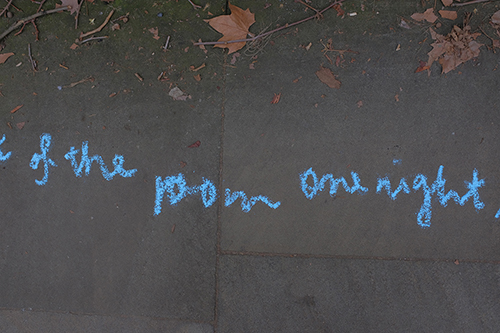 of the pom one night,